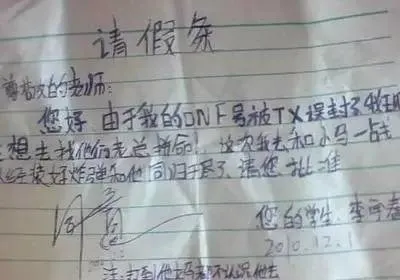 请假条
尊敬的老师:
您好 由于我的DNF号被TX误封了我现
想去找他们老总拼命! 这次我去和小马一战
经装好炸弹和他同归于尽了 请您批准
同意
您的学生:李
2010.12.1
注:打到他妈都不认识他去